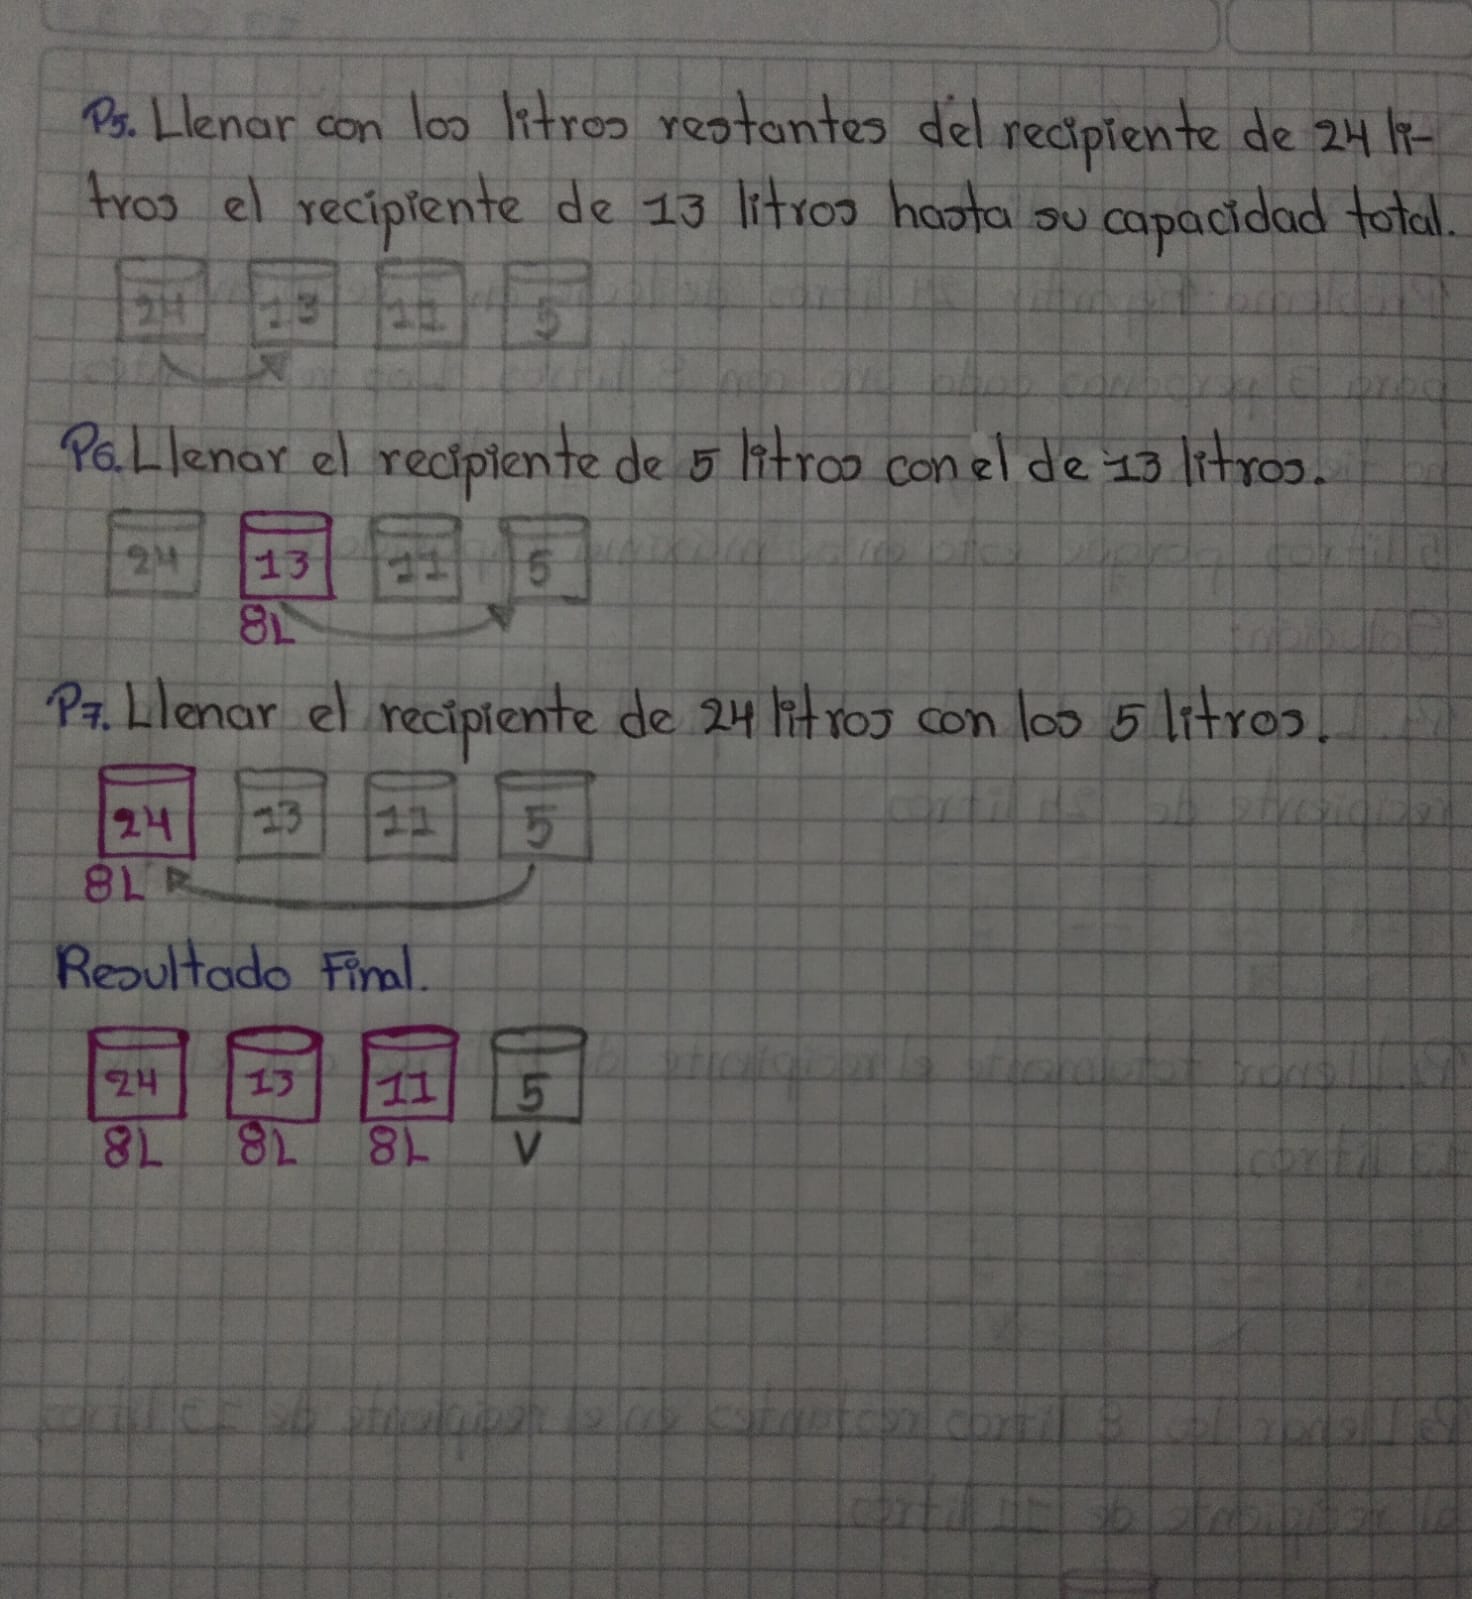 P5. Llenar con los litros restantes del recipiente de 24 li-
tros el recipiente de 13 litros hasta su capacidad total.
24 13 11 5
P6. Llenar el recipiente de 5 litros con el de 13 litros.
24 13 11 5
8L
P7. Llenar el recipiente de 24 litros con los 5 litros.
24 13 11 5
8L
Resultado Final.
24 13 11 5
8L 8L 8L V